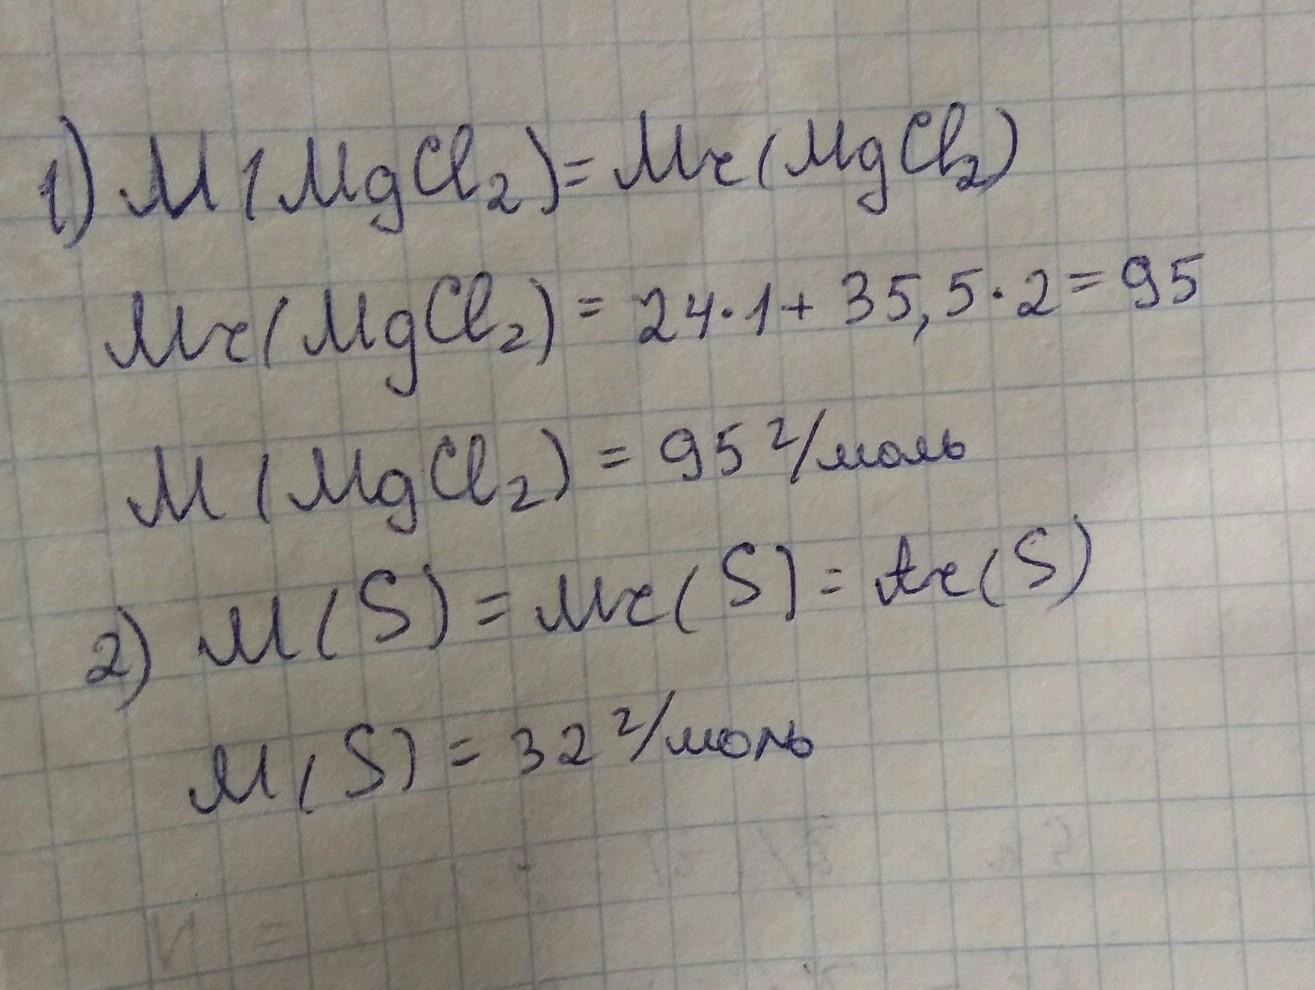 1) M(MgCl₂) = Mr(MgCl₂)
Mr(MgCl₂) = 24·1 + 35,5·2 = 95
M(MgCl₂) = 95 г/моль
2) M(S) = Mr(S) = Ar(S)
M(S) = 32 г/моль